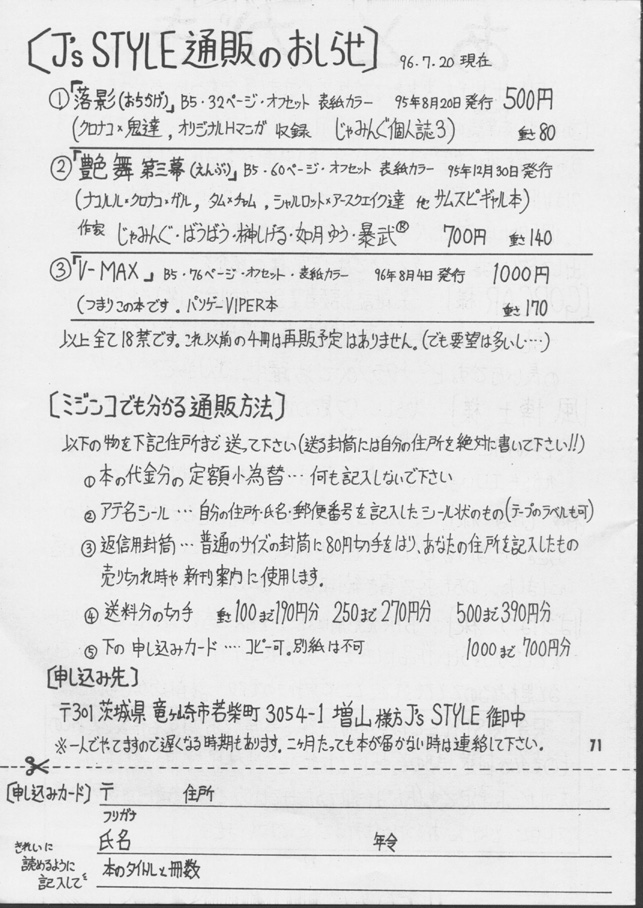 [J's STYLE 通販のおしらせ] 96.7.20 現在
①「落影(おちかげ)」B5・32ページ・オフセット 表紙カラー 95年8月20日発行 500円
(クロナコ×鬼達, オリジナルHマンガ 収録 じゃみんぐ個人誌3) 重さ80
②「艶舞 第三幕(えんぶ)」B5・60ページ・オフセット 表紙カラー 95年12月30日発行
(ナコルル・クロナコ×ガル, タム×チャム, シャルロット×アースクエイク達 他 サムスピギャル本)
作家 じゃみんぐ・ばうばう・榊しげる・如月ゆう・暴武® 700円 重さ140
③「V-MAX」B5・76ページ・オフセット・表紙カラー 96年8月4日発行 1000円
(つまりこの本です。パソゲーVIPER本 重さ170
以上全て18禁です。これ以前の4冊は再販予定はありません。(でも要望は多いし…)
[ミジンコでも分かる通販方法]
以下の物を下記住所まで送って下さい(送る封筒には自分の住所を絶対に書いて下さい!!)
①本の代金分の定額小為替…何も記入しないで下さい
②アテ名シール…自分の住所・氏名・郵便番号を記入したシール状のもの(テープのラベルも可)
③返信用封筒…普通のサイズの封筒に80円切手をはり、あなたの住所を記入したもの
売り切れ時や新刊案内に使用します。
④送料分の切手 重さ100まで190円分 250まで270円分 500まで390円分
⑤下の申し込みカード….コピー可。別紙は不可 1000まで700円分
[申し込み先]
〒301 茨城県 竜ヶ崎市若柴町3054-1 増山様方J's STYLE 御中
※一人でやってますので遅くなる時期もあります。二ヶ月たっても本が届かない時は連絡して下さい。 71
[申し込みカード] 〒 住所
フリガナ
氏名 年令
きれいに読めるように記入してを
本のタイトルと冊数